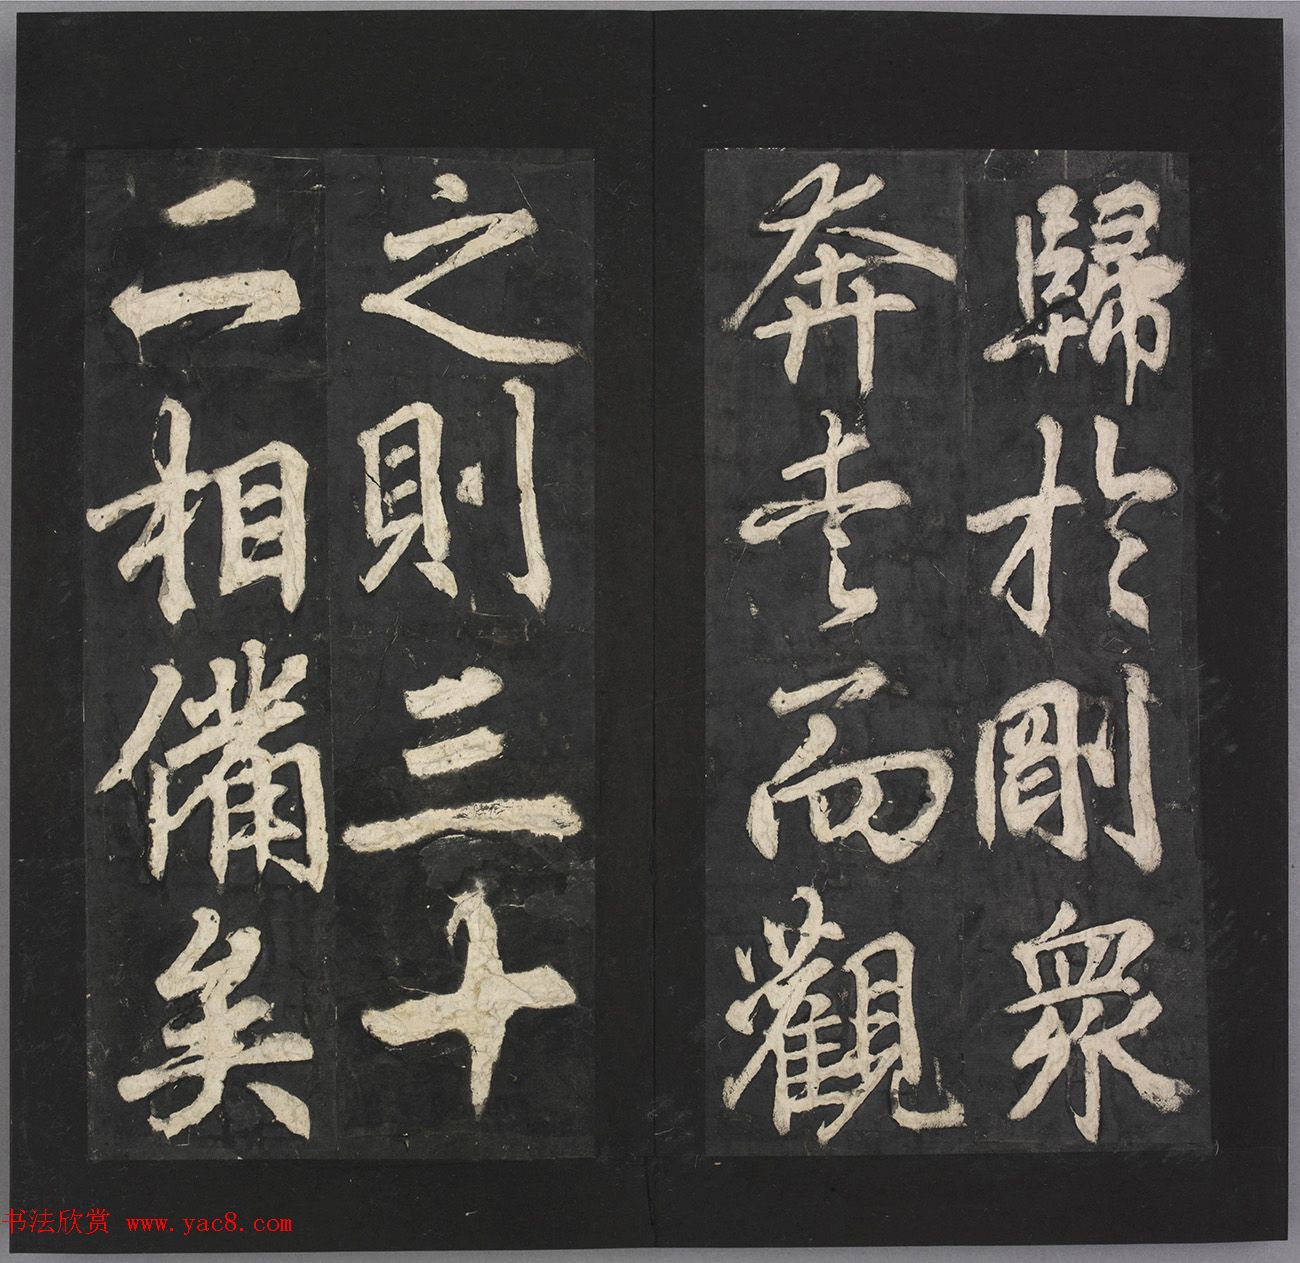 歸於剛衆
奔走而觀
之則三十
二相備矣
书法欣赏 www.yac8.com